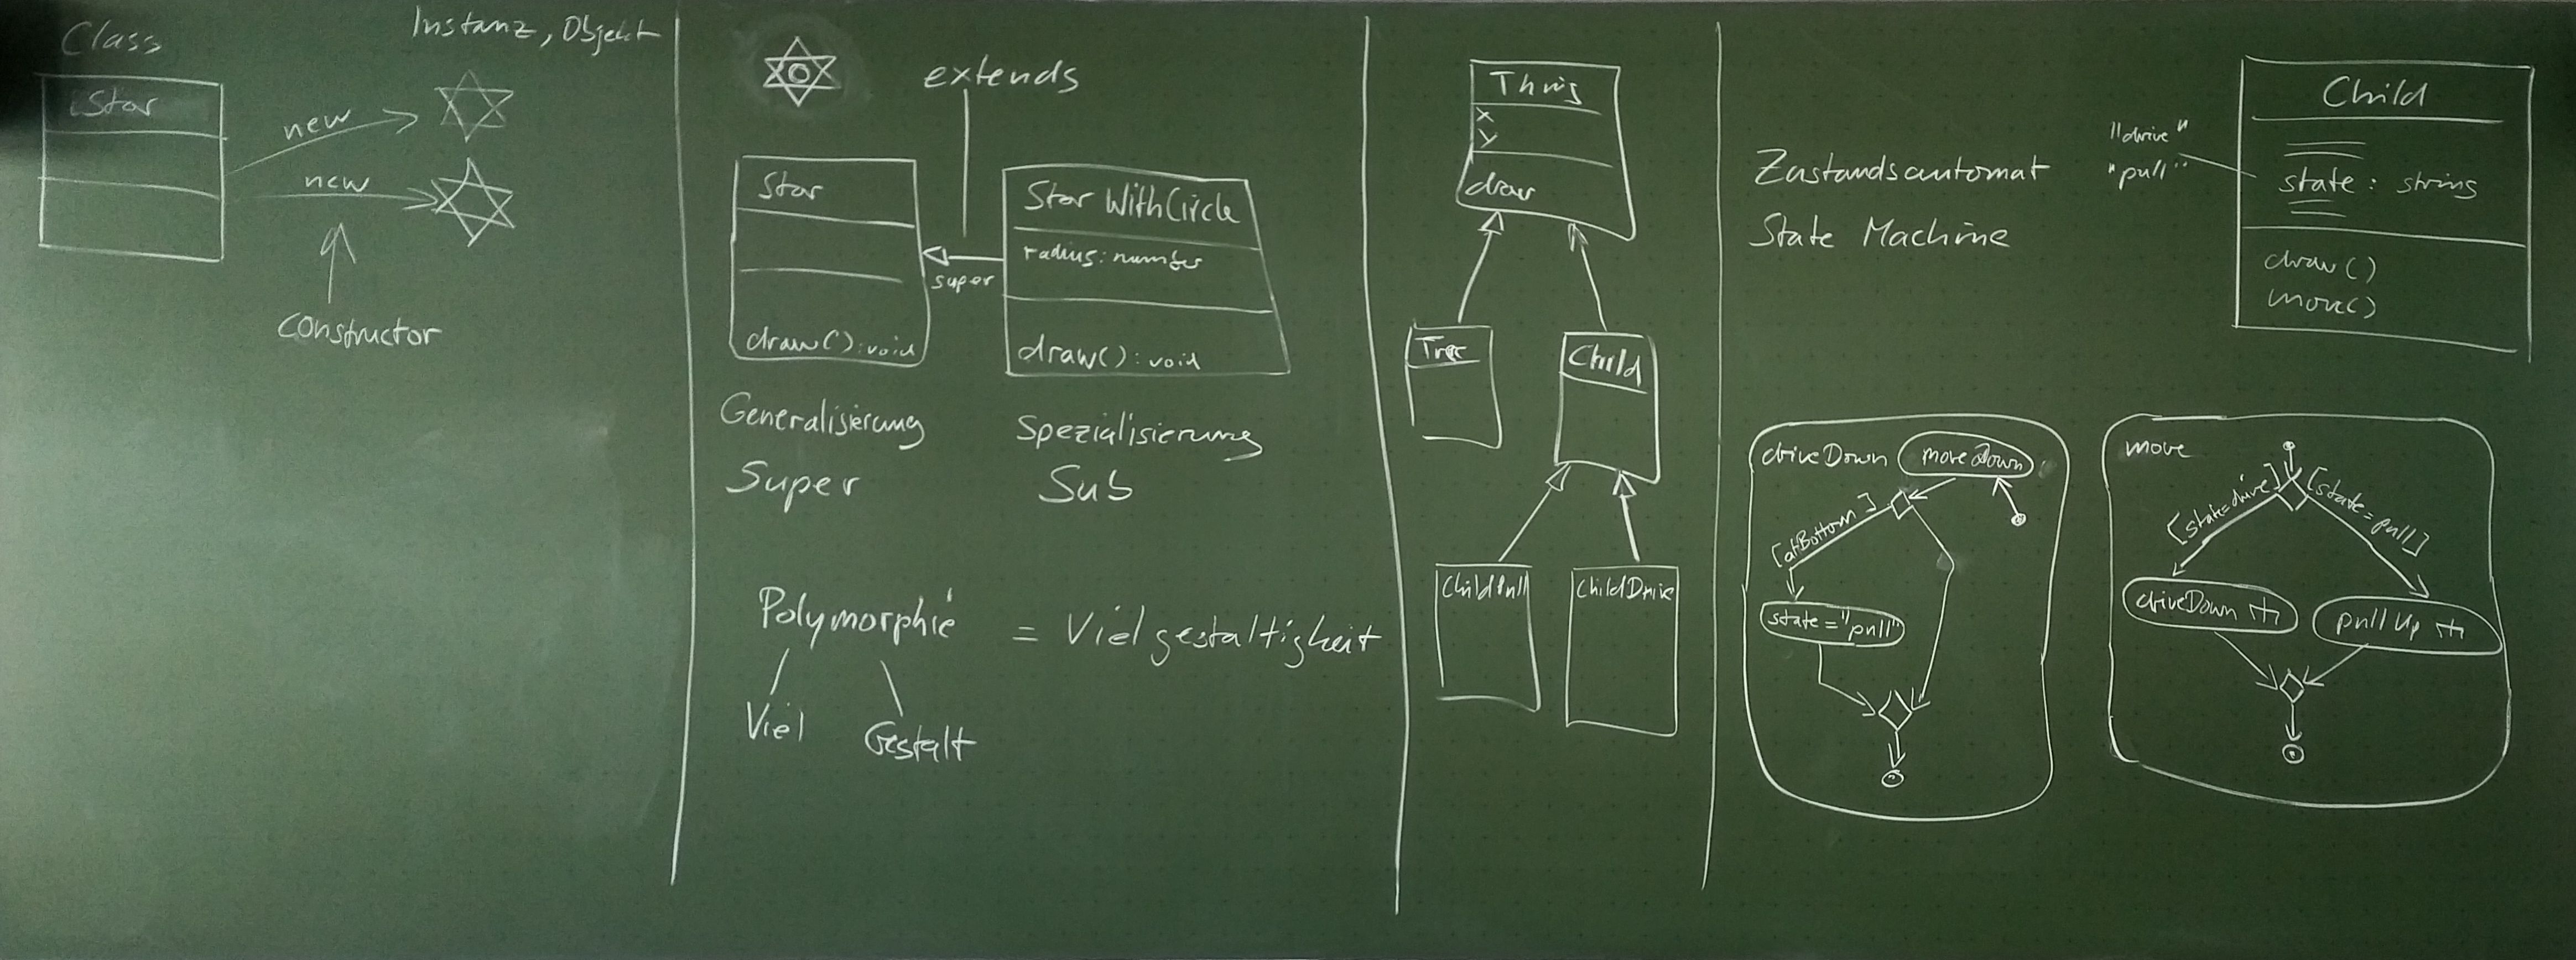 Class
Instanz, Objekt
Star
new
new
constructor
extends
Star
draw() : void
super
Star WithCircle
radius: number
draw() : void
Generalisierung
Spezialisierung
Super
Sub
Polymorphie = Vielgestaltigkeit
Viel
Gestalt
Thing
x
y
draw
Tree
Child
ChildPull
ChildDrive
Zustandsautomat
State Machine
"drive"
"pull"
Child
state : string
draw()
move()
driveDown
move down
[atBottom]
state = "pull"
move
[state=drive]
[state=pull]
driveDown
pull Up